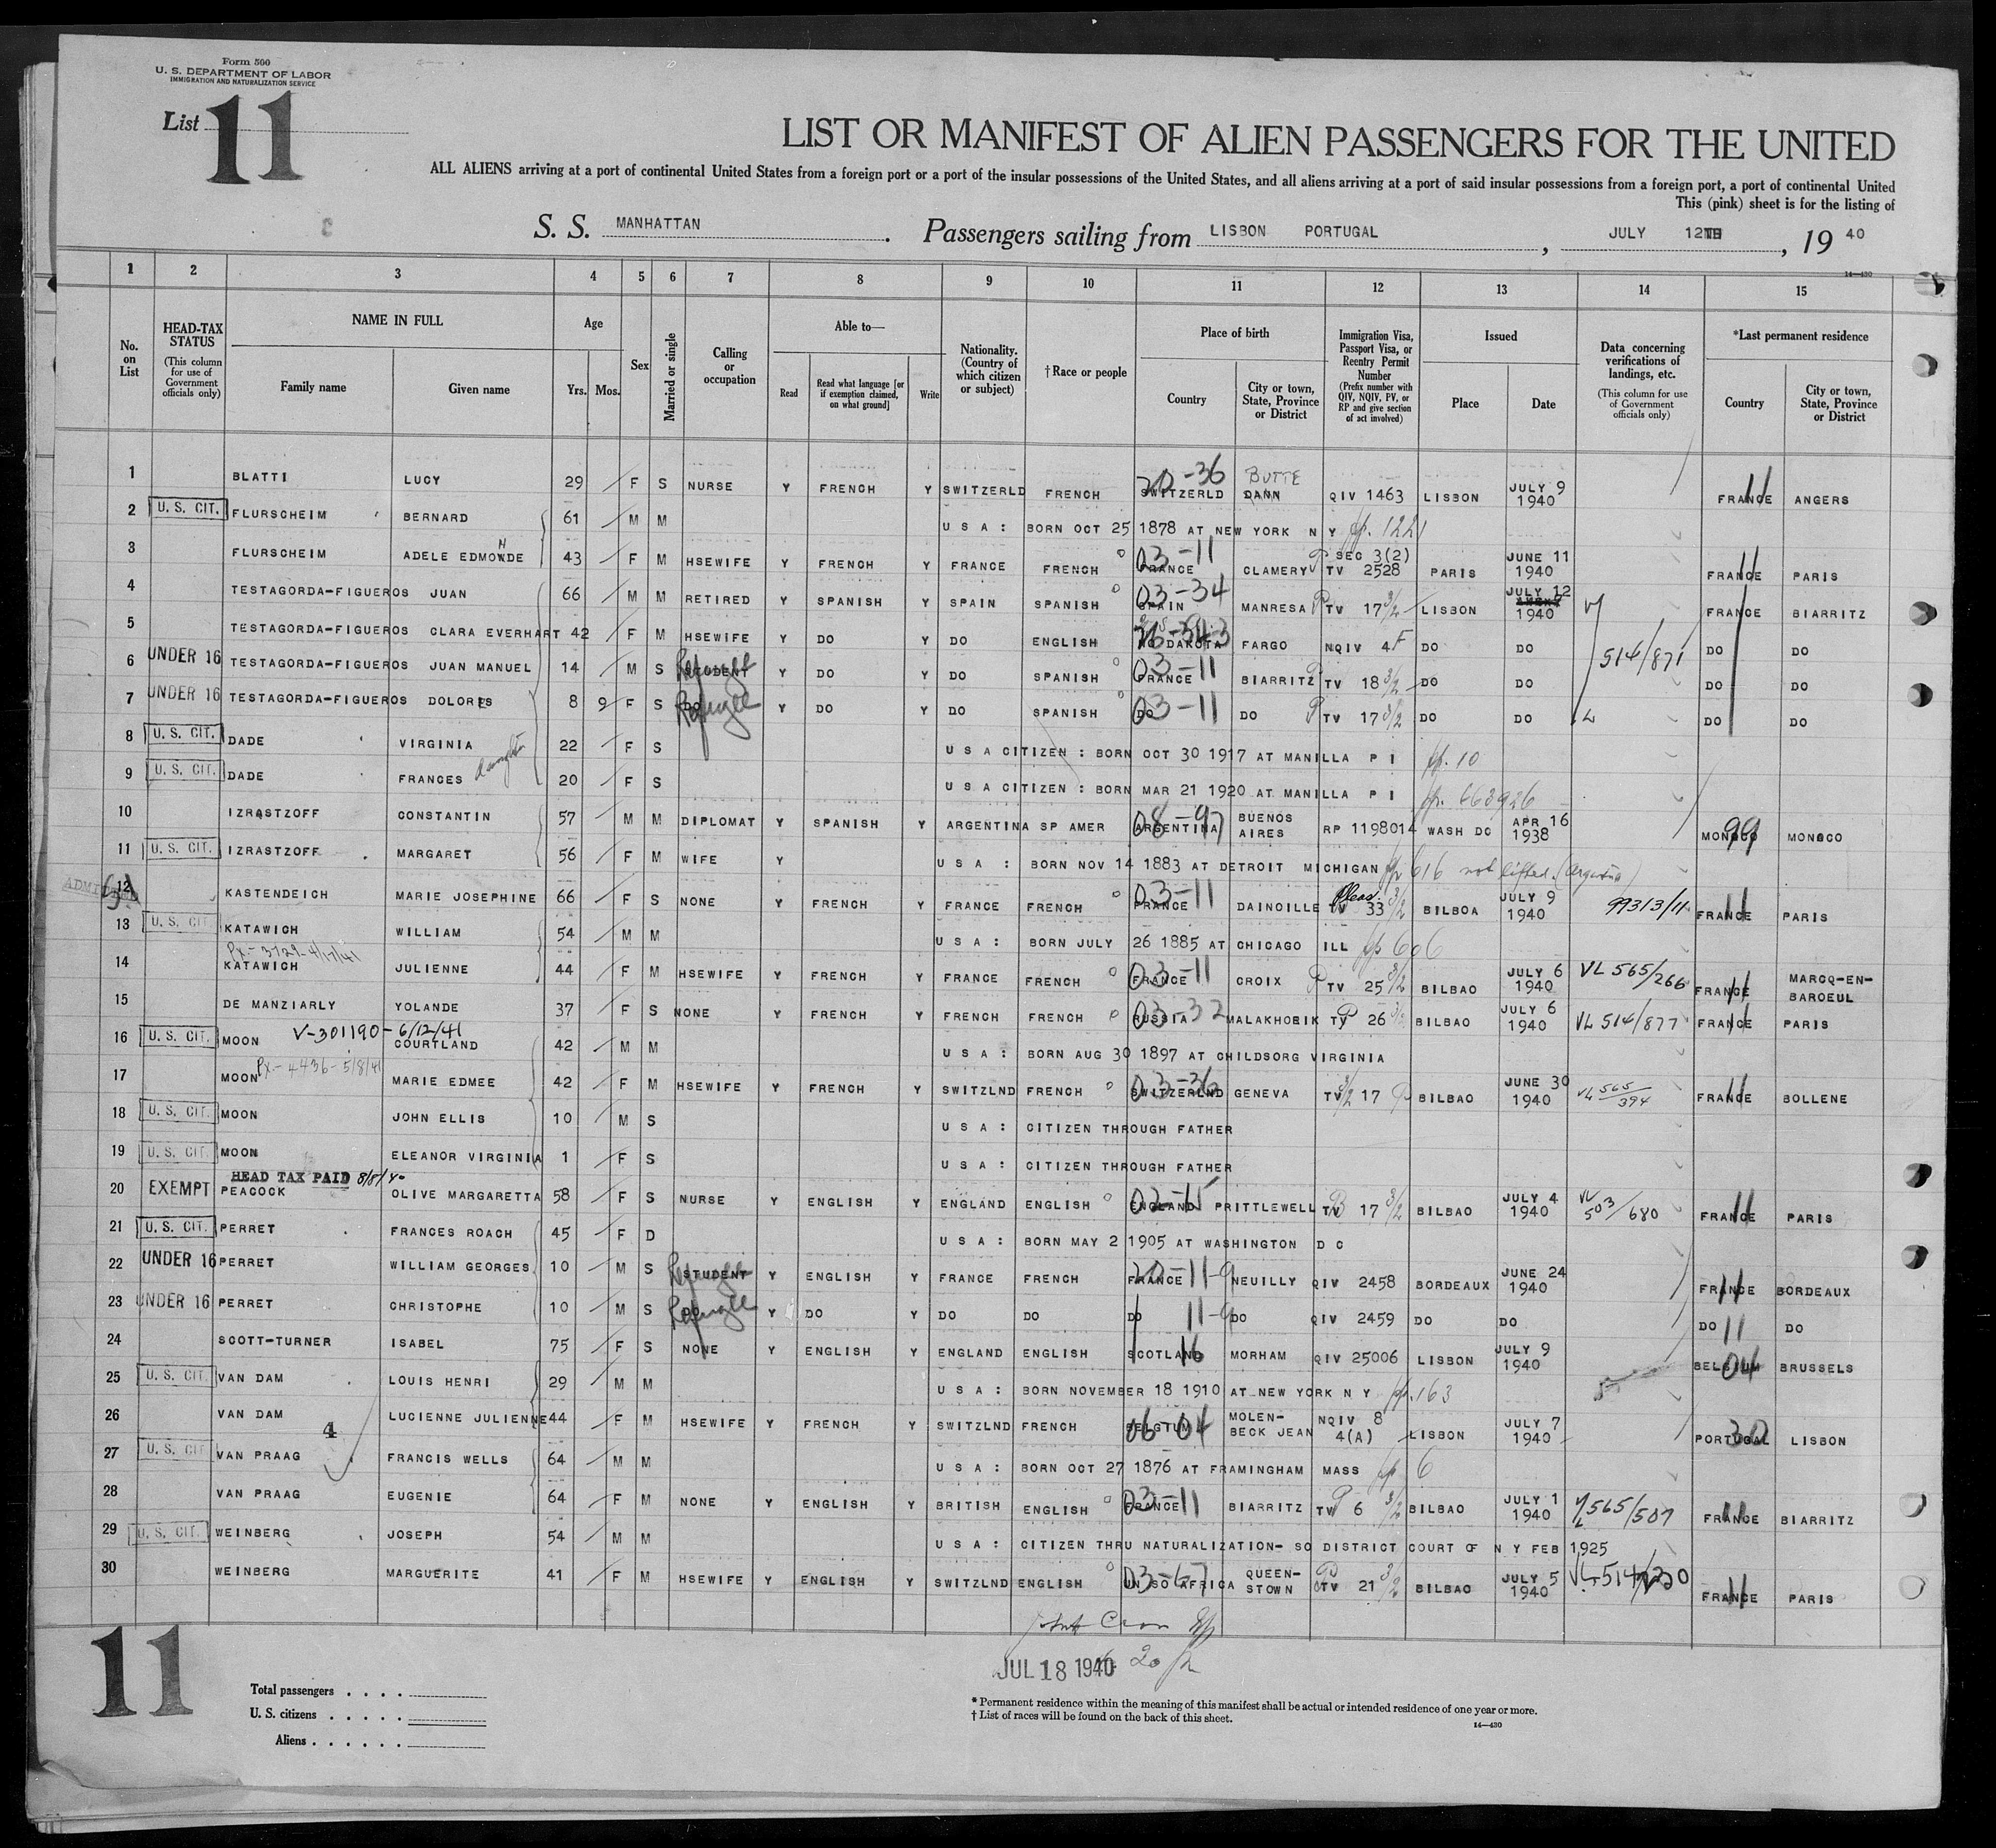 Form 500
U. S. DEPARTMENT OF LABOR
IMMIGRATION AND NATURALIZATION SERVICE
List 11
LIST OR MANIFEST OF ALIEN PASSENGERS FOR THE UNITED
ALL ALIENS arriving at a port of continental United States from a foreign port or a port of the insular possessions of the United States, and all aliens arriving at a port of said insular possessions from a foreign port, a port of continental United
This (pink) sheet is for the listing of
S. S. MANHATTAN . Passengers sailing from LISBON PORTUGAL , JULY 12TH , 19 40
14—430
1 2 3 4 5 6 7 8 9 10 11 12 13 14 15
No. on List
HEAD-TAX STATUS
(This column for use of Government officials only)
NAME IN FULL
Family name
Given name
Age
Yrs. Mos.
Sex
Married or single
Calling or occupation
Able to—
Read
Read what language [or if exemption claimed, on what ground]
Write
Nationality. (Country of which citizen or subject)
† Race or people
Place of birth
Country
City or town, State, Province or District
Immigration Visa, Passport Visa, or Reentry Permit Number
(Prefix number with QIV, NQIV, PV, or RP and give section of act involved)
Issued
Place
Date
Data concerning verifications of landings, etc.
(This column for use of Government officials only)
*Last permanent residence
Country
City or town, State, Province or District
1 BLATTI LUCY 29 F S NURSE Y FRENCH Y SWITZERLD FRENCH 20-36 SWITZERLD BUTTE DANN QIV 1463 LISBON JULY 9 1940 FRANCE 11 ANGERS
2 U. S. CIT. FLURSCHEIM BERNARD 61 M M U S A : BORN OCT 25 1878 AT NEW YORK N Y pp. 1221
3 FLURSCHEIM ADELE EDMONDE H 43 F M HSEWIFE Y FRENCH Y FRANCE FRENCH 03-11 FRANCE CLAMERY SEC 3(2) P TV 2528 PARIS JUNE 11 1940 FRANCE 11 PARIS
4 TESTAGORDA-FIGUEROS JUAN 66 M M RETIRED Y SPANISH Y SPAIN SPANISH 03-34 SPAIN MANRESA P TV 17 3/2 LISBON JULY 12 1940 FRANCE BIARRITZ
5 TESTAGORDA-FIGUEROS CLARA EVERHART 42 F M HSEWIFE Y DO Y DO ENGLISH NO DAKOTA FARGO NQIV 4F DO DO DO DO
6 UNDER 16 TESTAGORDA-FIGUEROS JUAN MANUEL 14 M S STUDENT Refugee Y DO Y DO SPANISH 03-11 FRANCE BIARRITZ P TV 18 3/2 DO DO 514/871 DO DO
7 UNDER 16 TESTAGORDA-FIGUEROS DOLORES 8 9 F S DO Refugee Y DO Y DO SPANISH 03-11 DO DO P TV 17 3/2 DO DO DO DO
8 U. S. CIT. DADE VIRGINIA 22 F S U S A CITIZEN : BORN OCT 30 1917 AT MANILLA P I pp. 10
9 U. S. CIT. DADE FRANCES daughter 20 F S U S A CITIZEN : BORN MAR 21 1920 AT MANILLA P I pp. 663926
10 IZRASTZOFF CONSTANTIN 57 M M DIPLOMAT Y SPANISH Y ARGENTINA SP AMER 08-97 ARGENTINA BUENOS AIRES RP 1198014 WASH DC APR 16 1938 MONACO 99 MONACO
11 U. S. CIT. IZRASTZOFF MARGARET 56 F M WIFE Y U S A : BORN NOV 14 1883 AT DETROIT MICHIGAN pp 616 not lifted (Argentina)
ADMITTED
12 KASTENDEICH MARIE JOSEPHINE 66 F S NONE Y FRENCH Y FRANCE FRENCH 03-11 FRANCE DAINOILLE TV 33 3/2 BILBOA JULY 9 1940 99313/11 FRANCE 11 PARIS
13 U. S. CIT. KATAWICH WILLIAM 54 M M U S A : BORN JULY 26 1885 AT CHICAGO ILL pp 606
Px-3729-4/17/41
14 KATAWICH JULIENNE 44 F M HSEWIFE Y FRENCH Y FRANCE FRENCH 03-11 FRANCE CROIX P TV 25 3/2 BILBAO JULY 6 1940 VL 565/266 FRANCE 11 MARCQ-EN-BAROEUL
15 DE MANZIARLY YOLANDE 37 F S NONE Y FRENCH Y FRENCH FRENCH 03-32 RUSSIA MALAKHOBIK TV 26 3/2 BILBAO JULY 6 1940 VL 514/877 FRANCE 11 PARIS
V-301190-6/12/41
16 U. S. CIT. MOON COURTLAND 42 M M U S A : BORN AUG 30 1897 AT CHILDSORG VIRGINIA
Px-4436-5/8/41
17 MOON MARIE EDMEE 42 F M HSEWIFE Y FRENCH Y SWITZLND FRENCH 03-36 SWITZERLND GENEVA TV 3/2 17 P BILBAO JUNE 30 1940 VL 565/394 FRANCE 11 BOLLENE
18 U. S. CIT. MOON JOHN ELLIS 10 M S U S A : CITIZEN THROUGH FATHER
19 U. S. CIT. MOON ELEANOR VIRGINIA 1 F S U S A : CITIZEN THROUGH FATHER
HEAD TAX PAID 8/8/40
20 EXEMPT PEACOCK OLIVE MARGARETTA 58 F S NURSE Y ENGLISH Y ENGLAND ENGLISH 02-15 ENGLAND PRITTLEWELL TV 17 3/2 BILBAO JULY 4 1940 VL 503/680 FRANCE 11 PARIS
21 U. S. CIT. PERRET FRANCES ROACH 45 F D U S A : BORN MAY 2 1905 AT WASHINGTON D C
22 UNDER 16 PERRET WILLIAM GEORGES 10 M S STUDENT Refugee Y ENGLISH Y FRANCE FRENCH 20-11-9 FRANCE NEUILLY QIV 2458 BORDEAUX JUNE 24 1940 FRANCE 11 BORDEAUX
23 UNDER 16 PERRET CHRISTOPHE 10 M S DO Refugee Y DO Y DO DO DO 11-9 DO QIV 2459 DO DO DO 11 DO
24 SCOTT-TURNER ISABEL 75 F S NONE Y ENGLISH Y ENGLAND ENGLISH SCOTLAND 16 MORHAM QIV 25006 LISBON JULY 9 1940 BELGIUM 04 BRUSSELS
25 U. S. CIT. VAN DAM LOUIS HENRI 29 M M U S A : BORN NOVEMBER 18 1910 AT NEW YORK N Y pp. 163
26 VAN DAM LUCIENNE JULIENNE 44 F M HSEWIFE Y FRENCH Y SWITZLND FRENCH 06-04 BELGIUM MOLEN-BECK JEAN NQIV 8 4(A) LISBON JULY 7 1940 PORTUGAL 30 LISBON
4
27 U. S. CIT. VAN PRAAG FRANCIS WELLS 64 M M U S A : BORN OCT 27 1876 AT FRAMINGHAM MASS pp 6
28 VAN PRAAG EUGENIE 64 F M NONE Y ENGLISH Y BRITISH ENGLISH 03-11 FRANCE BIARRITZ P TV 6 3/2 BILBAO JULY 1 1940 VL 565/507 FRANCE 11 BIARRITZ
29 U. S. CIT. WEINBERG JOSEPH 54 M M U S A : CITIZEN THRU NATURALIZATION- SO DISTRICT COURT OF N Y FEB 1925
30 WEINBERG MARGUERITE 41 F M HSEWIFE Y ENGLISH Y SWITZLND ENGLISH 03-67 UN SO AFRICA QUEEN-STOWN P TV 21 3/2 BILBAO JULY 5 1940 FRANCE 11 PARIS
JUL 18 1940 20/2
11
Total passengers . . . .
U. S. citizens . . . . .
Aliens . . . . . .
* Permanent residence within the meaning of this manifest shall be actual or intended residence of one year or more.
† List of races will be found on the back of this sheet.
14—430